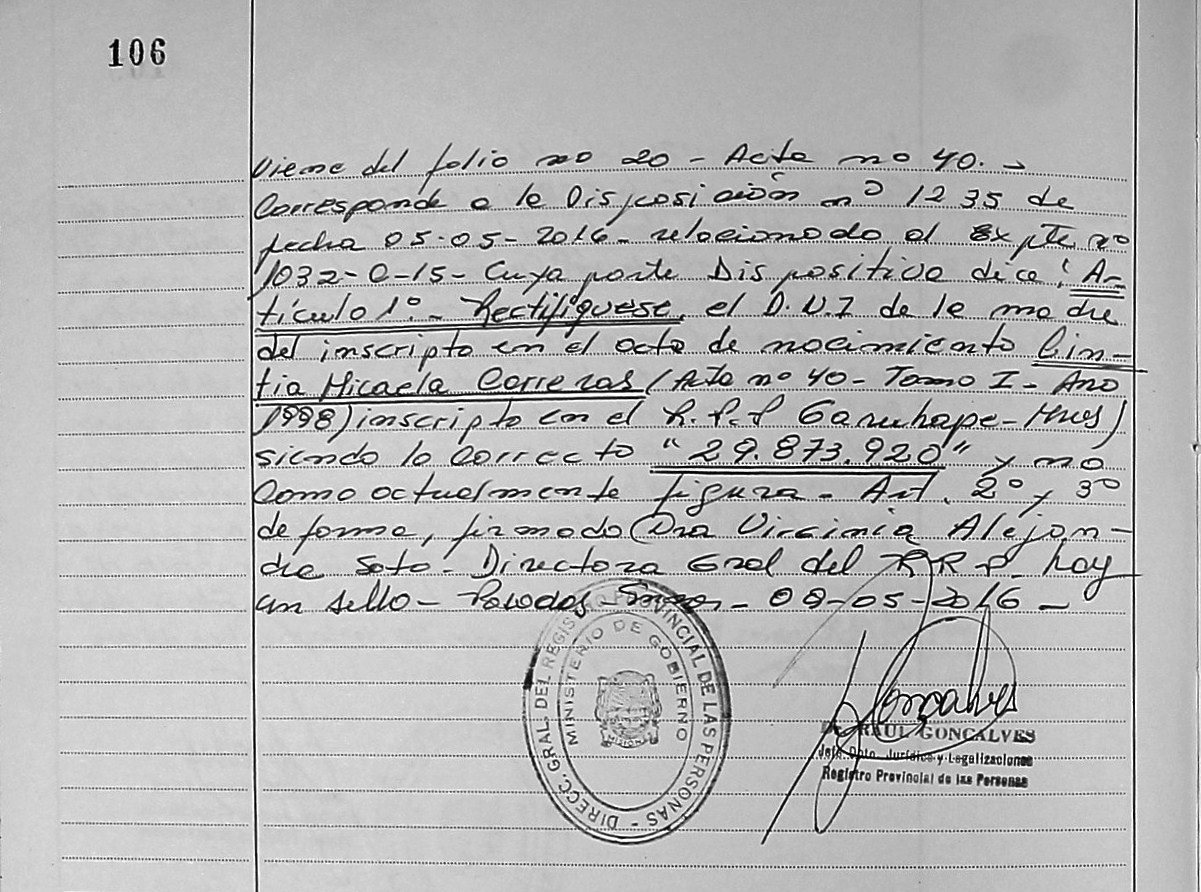 106
Viene del folio no 20 - Acta no 40. -
Corresponde a la Disposición nº 1235 de
fecha 05-05-2016 - relacionado al Expte nº
1032-C-15 - Cuya parte Dispositiva dice: Ar-
tículo 1º - Rectifíquese, el D.N.I de la madre
del inscripto en el acta de nacimiento Cin-
tia Micaela Carreras (Acta nº 40 - Tomo I - Año
1998) inscripto en el R.P.P Garuhape - Mnes)
siendo lo Correcto "29.873.920" y no
Como actualmente figura - Art. 2º y 3º
de forma, firmado Dra Virginia Alejan-
dra Soto - Directora Gral del R.R.P. hay
un sello - Posadas - 09-05-2016 -
DIRECC. GRAL. DEL REGISTRO PROVINCIAL DE LAS PERSONAS -
MINISTERIO DE GOBIERNO
MISIONES
Goncalves
RAUL GONCALVES
Jefe Dpto. Jurídico y Legalizaciones
Registro Provincial de las Personas